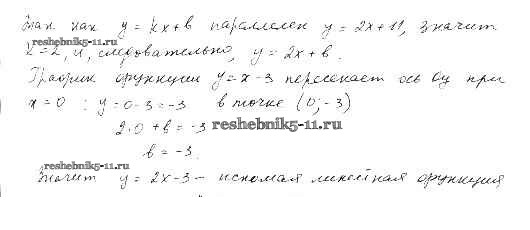 Так как y = kx+b параллелен y = 2x+11, значит
reshebnik5-11.ru
k=2, и, следовательно, y = 2x+b.
График функции y=x-3 пересекает ось Oy при
x=0 : y=0-3=-3 в точке (0;-3)
2·0+b=-3 reshebnik5-11.ru
b=-3.
reshebnik5-11.ru
Значит y = 2x-3 - искомая линейная функция